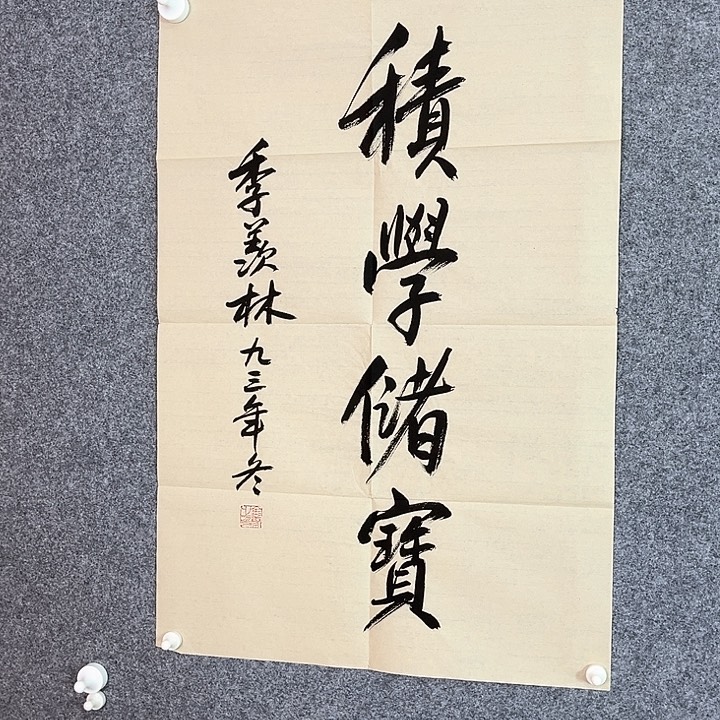 積學儲寶
季羨林九三年冬